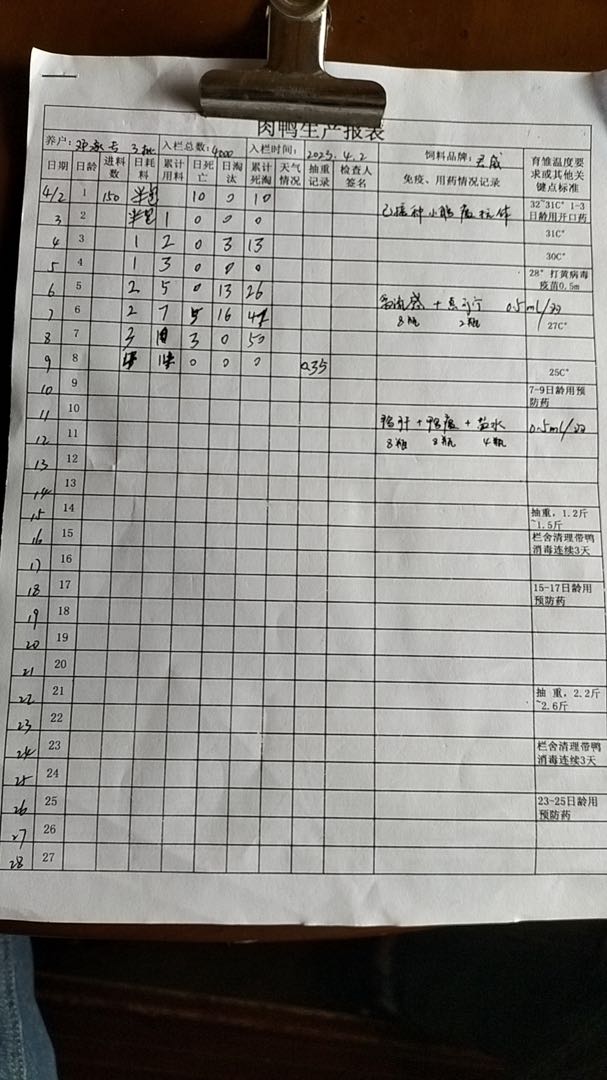 肉鸭生产报表
养户: 3批 入栏总数:4000 入栏时间: 2023.4.2 饲料品牌: 育雏温度要求或其他关键点标准
日期 日龄 进料数 日耗料 累计用料 日死亡 日淘汰 累计死淘 天气情况 抽重记录 检查人签名 免疫、用药情况记录
4/2 1 150 半包 10 0 10 32~31C° 1-3日龄用开口药
3 2 半包 1 0 0 0 已接种小鹅瘟抗体
4 3 1 2 0 3 13 31C°
5 4 1 3 0 0 0 30C°
6 5 2 5 0 13 26 28° 打黄病毒疫苗0.5m
7 6 2 7 5 16 47 禽流感 + 0.5ml/羽 8瓶 2瓶 27C°
8 7 3 10 3 0 50
9 8 4 14 0 0 0 0.35 25C°
10 9 7-9日龄用预防药
11 10 鸭肝 + 鸭瘟 + 盐水 0.5ml/羽
12 11 8瓶 8瓶 4瓶
13 12
14 13
15 14 抽重,1.2斤~1.5斤
16 15 栏舍清理带鸭消毒连续3天
17 16
18 17 15-17日龄用预防药
19 18
20 19
21 20
22 21 抽 重,2.2斤~2.6斤
23 22
24 23 栏舍清理带鸭消毒连续3天
25 24
26 25 23-25日龄用预防药
27 26
28 27